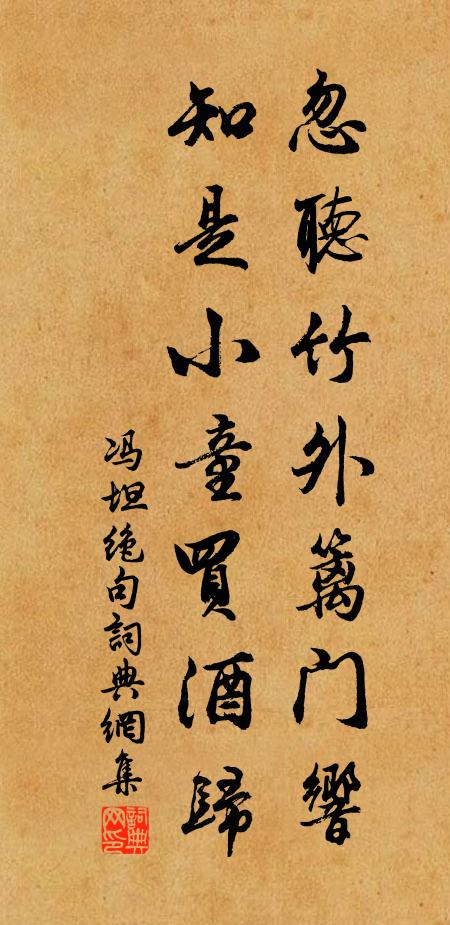 忽聽竹外篱门響
知是小童買酒歸
冯坦绝句詞典網集
詞典网印